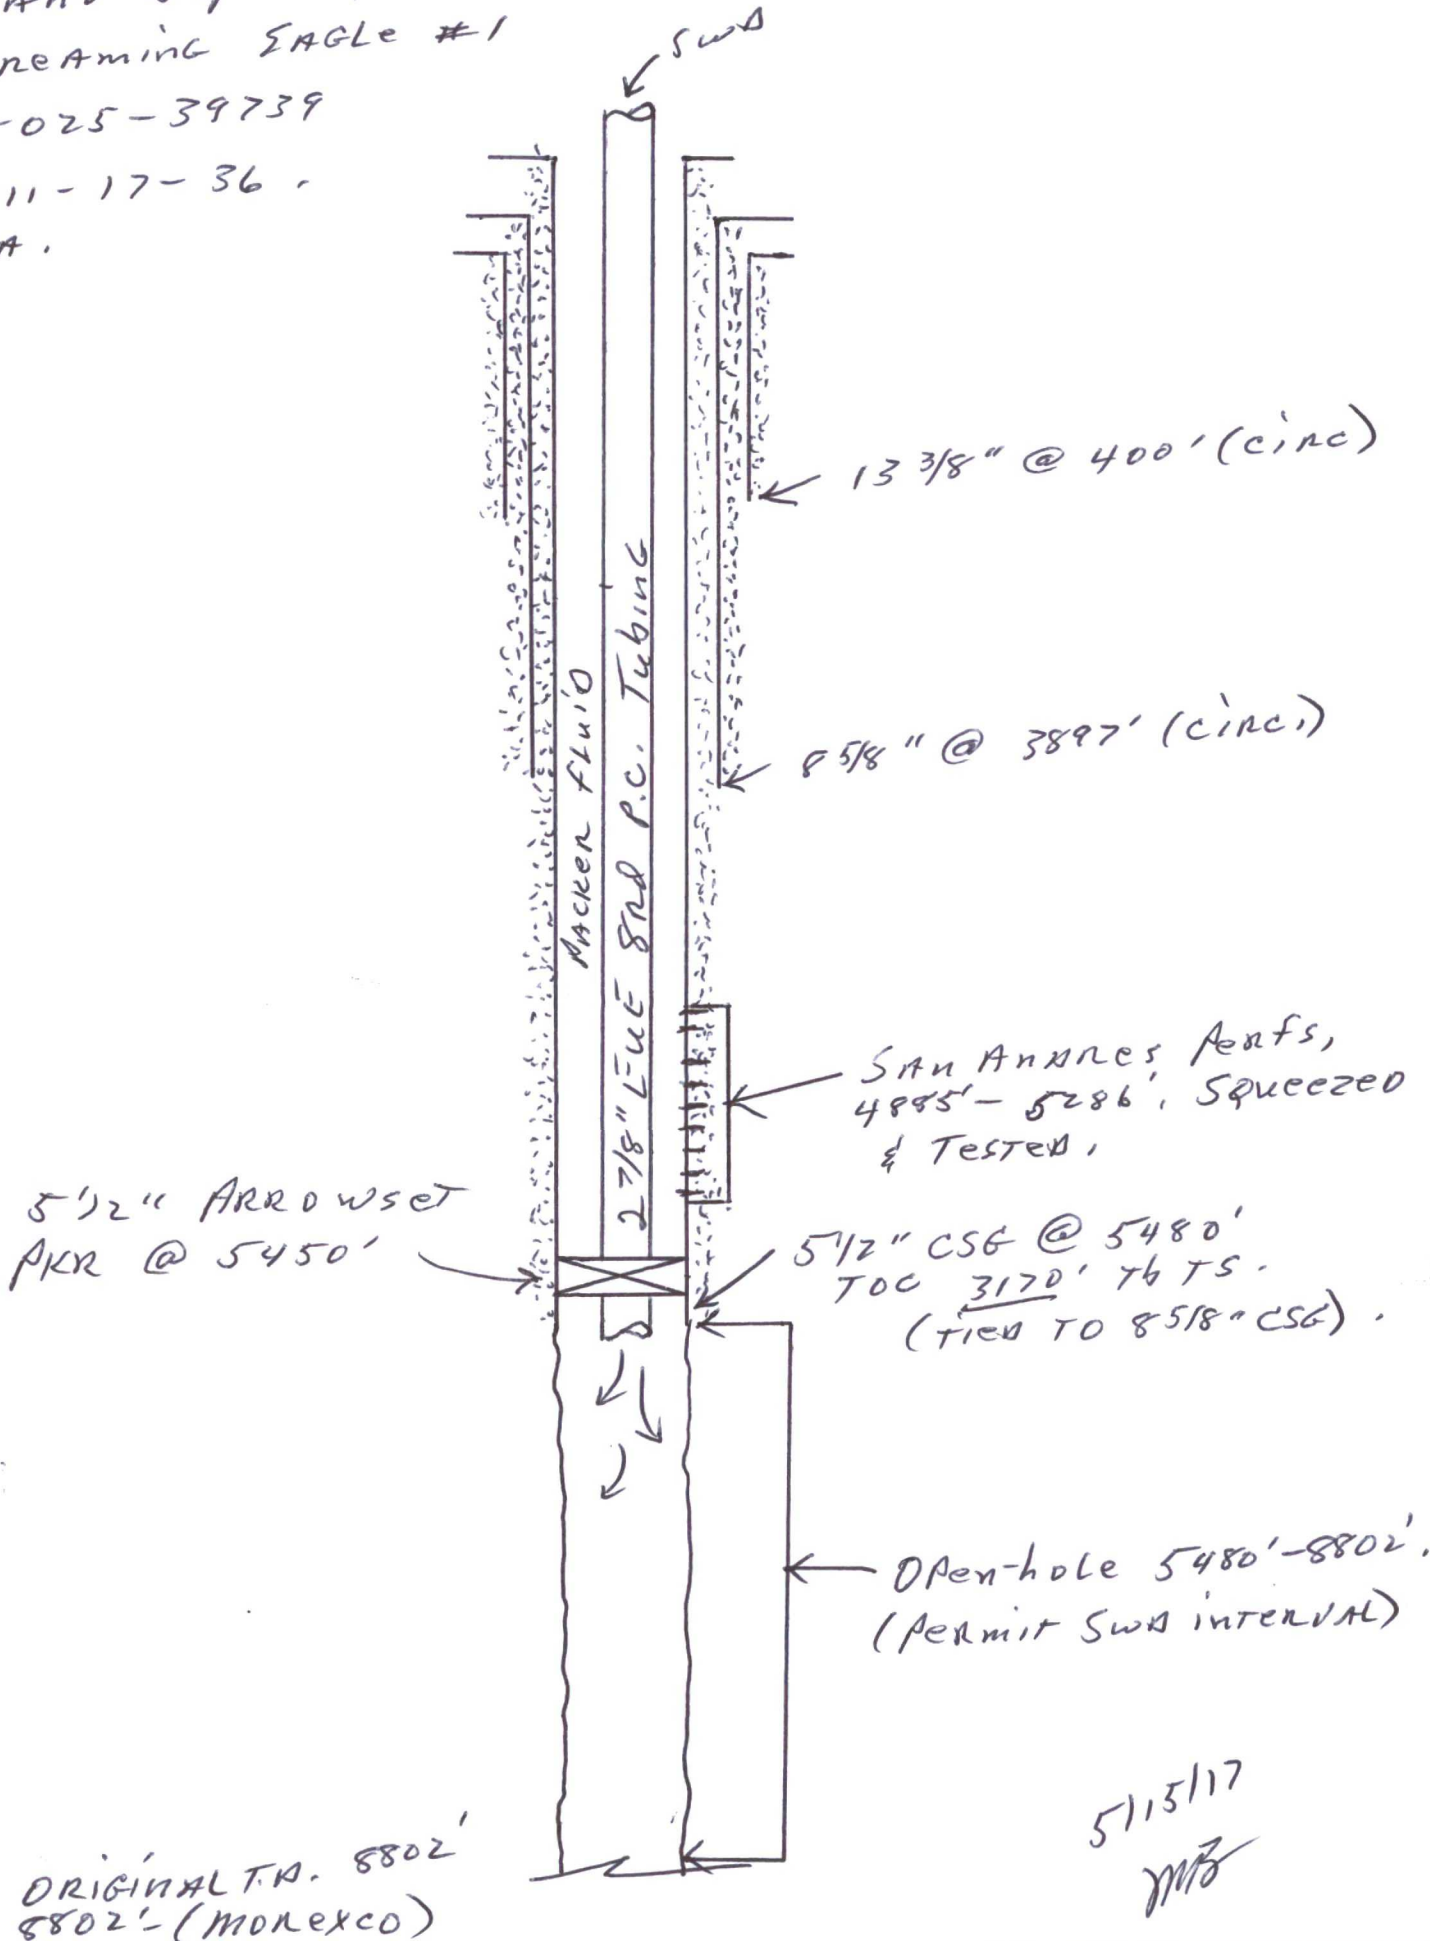 REAMING EAGLE #1
-025-39739
11-17-36.
A.
SWD
13 3/8" @ 400' (CIRC)
8 5/8" @ 3897' (CIRC.)
PACKER FLUID
2 7/8" EUE 8RD P.C. TUBING
SAN ANDRES PERFS,
4885'- 5286'. SQUEEZED
& TESTED.
5 1/2" ARROWSET
PKR @ 5450'
5 1/2" CSG @ 5480'
TOC 3170' Tb TS.
(TIED TO 8 5/8" CSG).
OPEN-HOLE 5480'-8802'.
(PERMIT SWD INTERVAL)
5/15/17
ORIGINAL T.D. 8802'
8802'-(MOREXCO)